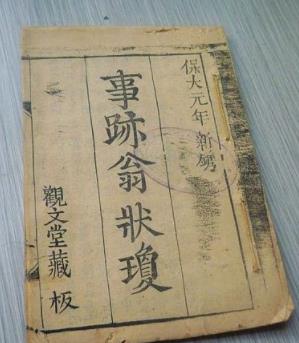 保大元年 新
事跡翁狀瓊
觀文堂藏板